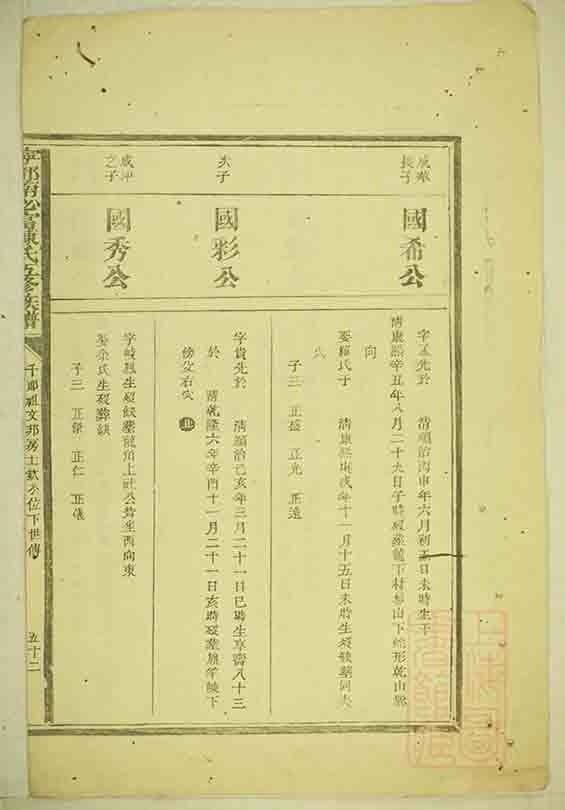 成華長子
國希公
字孟先於 清順治丙申年六月初五日未時生于
清康熙辛丑年八月二十九日子時歿葬龍下村山下蛇形乾山巽
向
娶羅氏于 清康熙庚戌年十一月十五日未時生歿葬同夫
穴
子三 正盛 正光 正遠
次子
國彩公
字貴先於 清順治己亥年三月二十一日巳時生享壽八十三
於 清乾隆六年辛酉十一月二十一日亥時歿葬下
傍父右穴
國秀公
之子
字峻烈生歿缺葬龍角上社公背坐西向東
娶余氏生歿葬缺
子三 正榮 正仁 正儀
陳氏五修族譜
千郎祖文邦房士欽公位下世傳
五十二